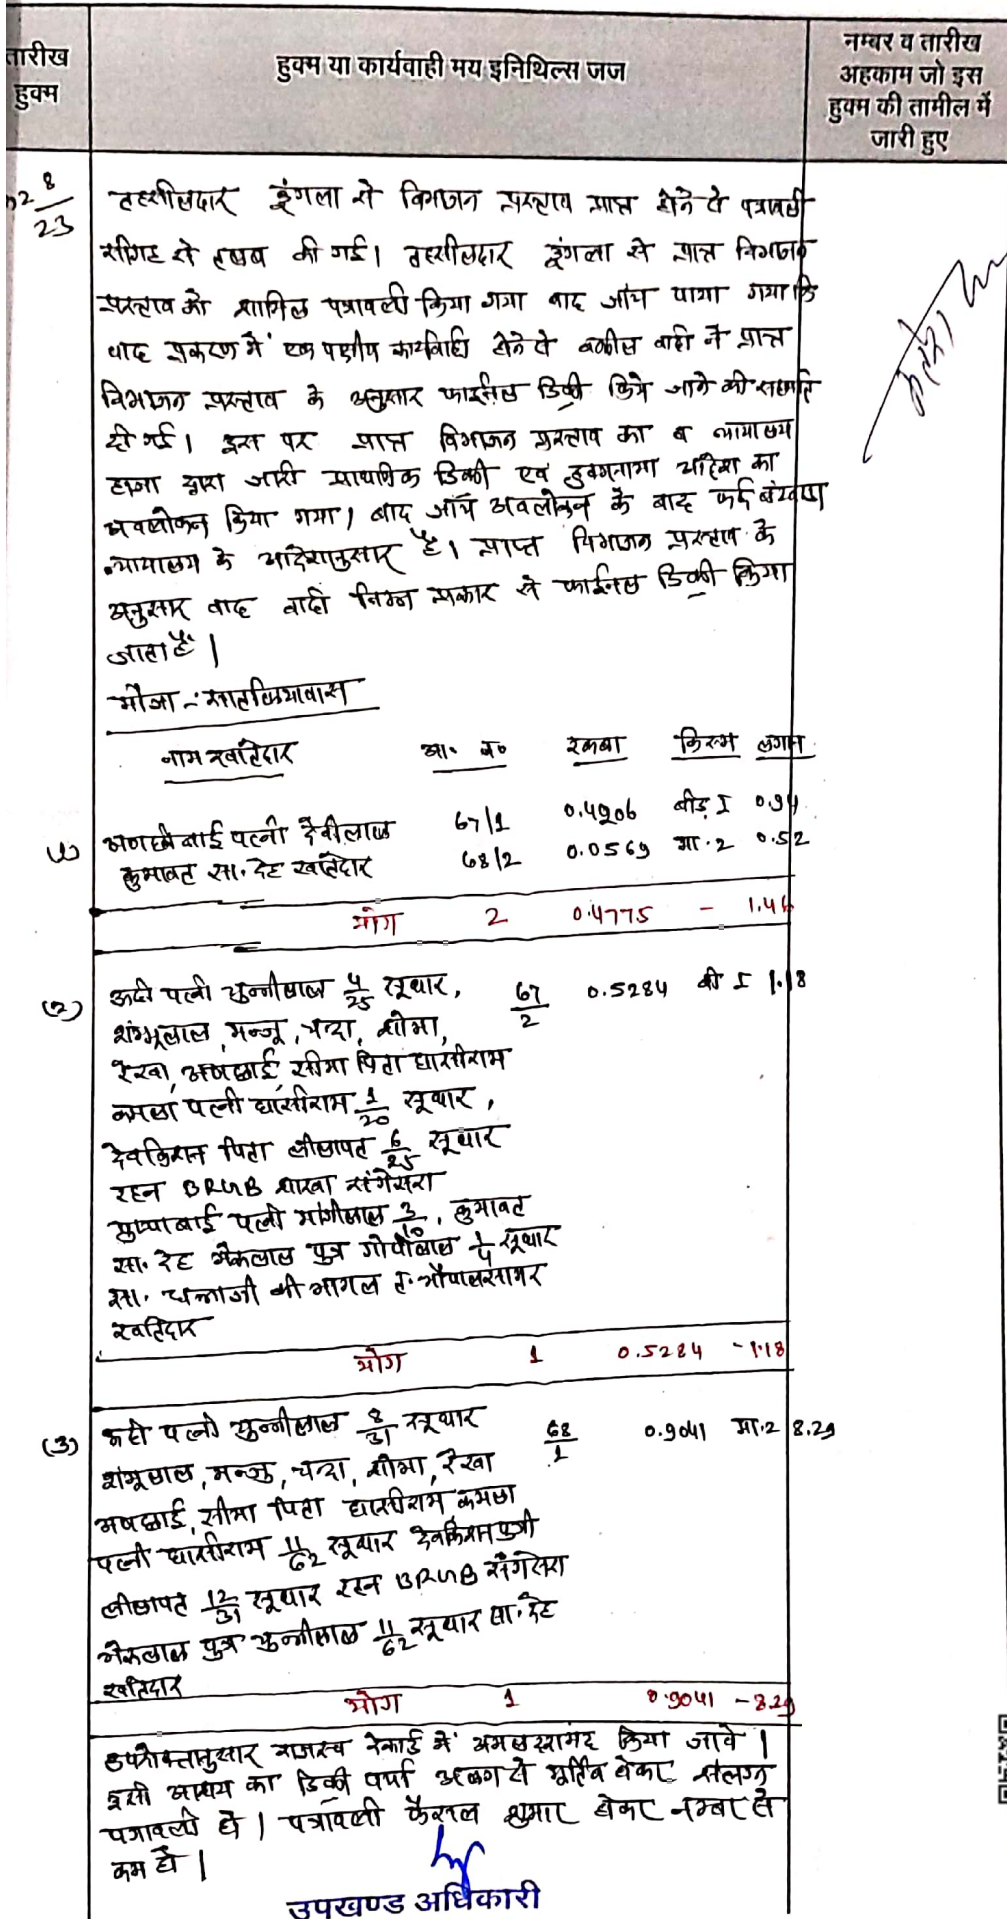 तारीख
हुक्म
हुक्म या कार्यवाही मय इनिथिल्स जज
नम्बर व तारीख
अहकाम जो इस
हुक्म की तामील में
जारी हुए
8
23
तहसीलदार डूंगला से विभाजन प्रस्ताव प्राप्त होने से पत्रावली
सीगह से तलब की गई। तहसीलदार डूंगला से प्राप्त विभाजन
प्रस्ताव को शामिल पत्रावली किया गया बाद जांच पाया गया कि
वाद प्रकरण में एक पक्षीय कार्यवाही होने से वकील वादी ने प्राप्त
विभाजन प्रस्ताव के अनुसार फाईनल डिक्री किये जाने की सहमति
दी गई। इस पर प्राप्त विभाजन प्रस्ताव का व न्यायालय
हाजा द्वारा जारी प्राथमिक डिक्री एवं हुक्मनामा आदेश का
अवलोकन किया गया। बाद जाँच अवलोकन के बाद फर्द बंटवारा
न्यायालय के आदेशानुसार है। प्राप्त विभाजन प्रस्ताव के
अनुसार वाद वादी निम्न प्रकार से फाईनल डिक्री किया
जाता है।
मौजा :-
नाम खातेदार आ. न. रकबा किस्म लगान
(1) बाई पत्नी देवीलाल 67/1 0.4206 बीड़ I 0.94
कुमावत सा. देह खातेदार 68/2 0.0569 मा.2 0.52
योग 2 0.4775 - 1.46
(2) पत्नी चुन्नीलाल 4/25 सूथार, 67/2 0.5284 बी I 1.18
शंभूलाल, मन्जू, चन्दा, शोभा,
रेखा, सीमा पिता घासीराम
कमला पत्नी घासीराम 1/20 सूथार,
देवकिशन पिता 6/25 सूथार
रहन BRGB शाखा संगेसरा
पुष्पाबाई पत्नी मांगीलाल 3/10, कुमावत
सा. देह भैरूलाल पुत्र गोपीलाल 1/4 सूथार
सा. की भागल त. भोपालसागर
खातेदार
योग 1 0.5284 - 1.18
(3) पत्नी चुन्नीलाल 8/31 सूथार 68/1 0.9041 मा.2 8.29
शंभूलाल, मन्जु, चन्दा, शोभा, रेखा
सीमा पिता घासीराम, कमला
पत्नी घासीराम 11/62 सूथार देवकिशन
12/31 सूथार रहन BRGB संगेसरा
भैरूलाल पुत्र चुन्नीलाल 11/62 सूथार सा. देह
खातेदार
योग 1 0.9041 - 8.29
उपरोक्तानुसार राजस्व रेकार्ड में अमल दरामद किया जावे।
इसी आशय का डिक्री पर्चा अलग से मुर्तिब होकर संलग्न
पत्रावली हो। पत्रावली फैसल शुमार होकर नम्बर से
कम हो।
उपखण्ड अधिकारी